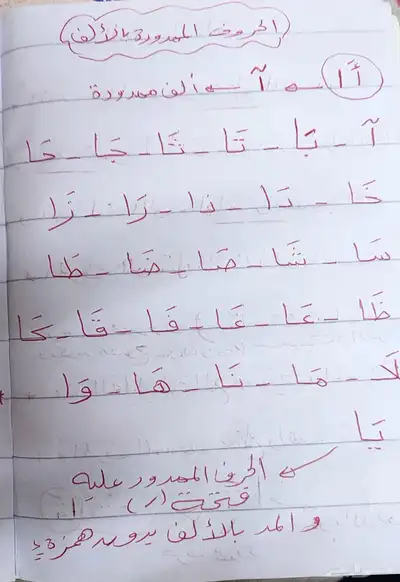 الحروف الممدودة بالألف
أَا ← آ ← ألف ممدودة
آ - بَا - تَا - ثَا - جَا - حَا
خَا - دَا - ذا - رَا - زَا
سَا - شَا - صَا - ضَا - طَا
ظَا - عَا - غَا - فَا - قَا - كَا
لَا - مَا - نَا - هَا - وَا
يَا
الحرف الممدود عليه
فتحة (َ) ا
والمد بالألف بدون همزة ء